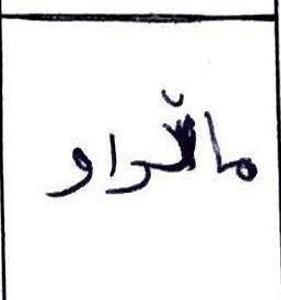 ماڵراو